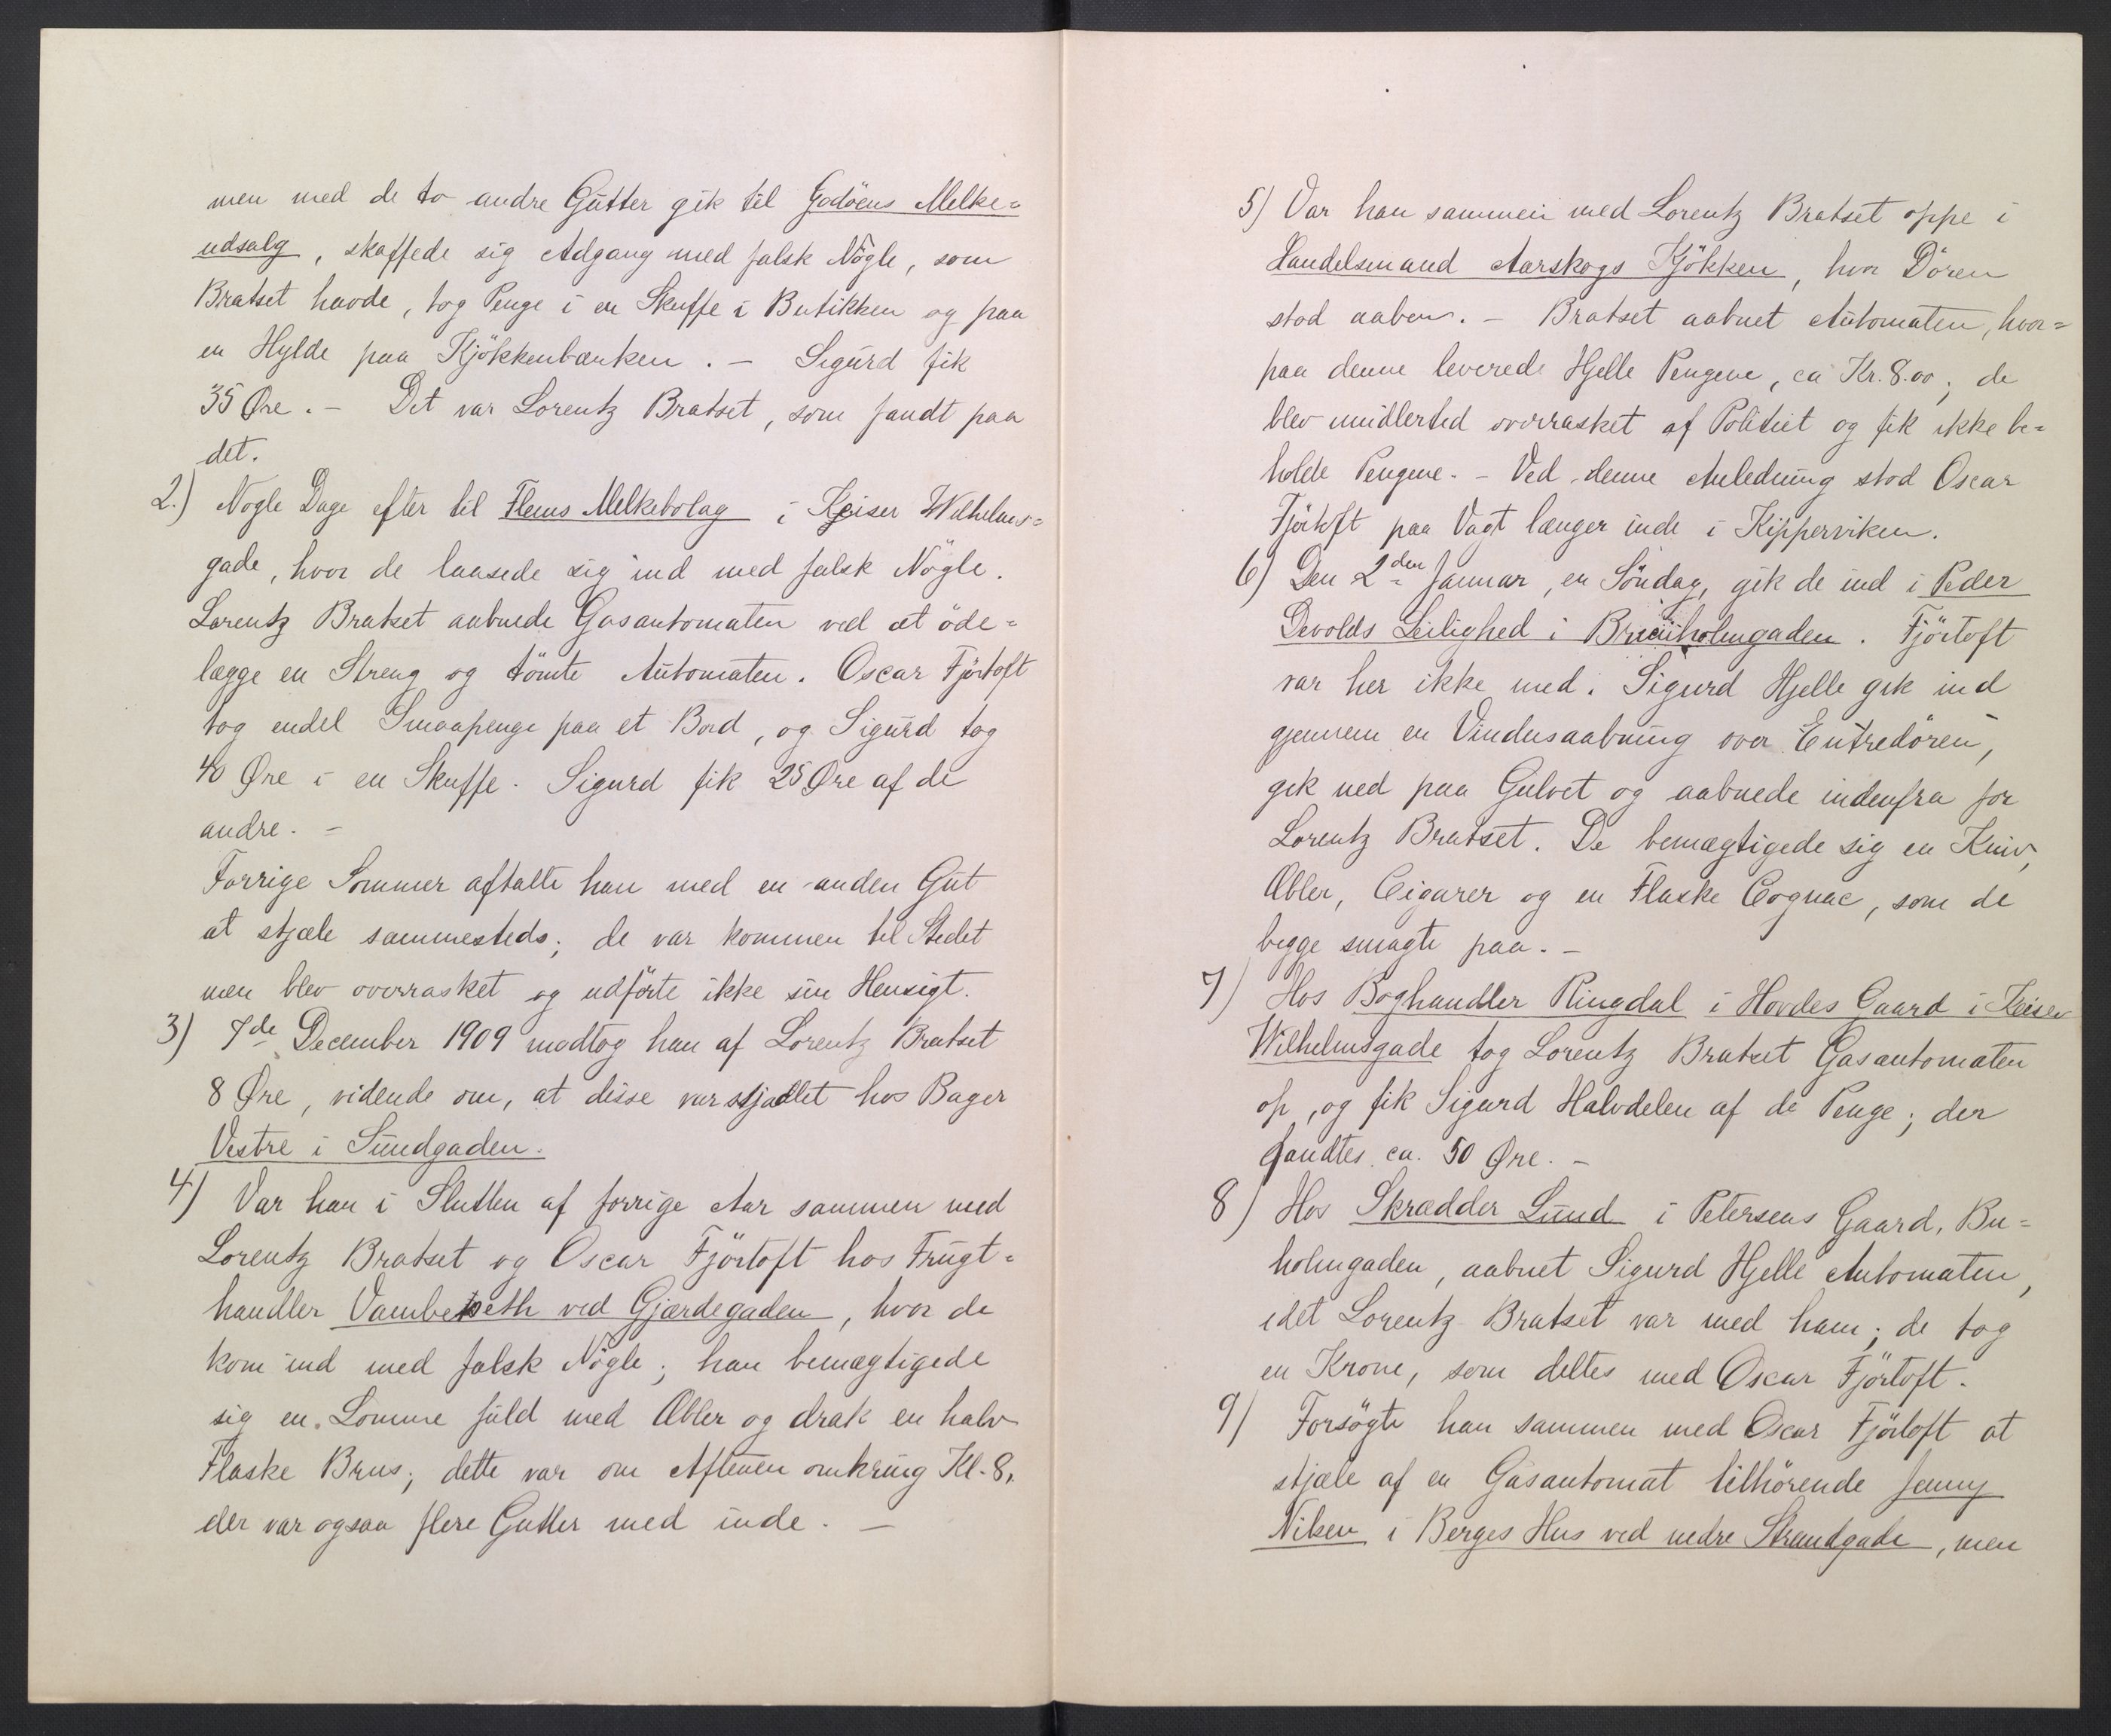 men med de to andre Gutter gik til Godöens Melke=
udsalg, skaffede sig Adgang med falsk Nögle, som
Bratset havde, tog Penge i en Skuffe i Butikken og paa
en Hylde paa Kjökkenbænken. - Sigurd fik
35 Øre. - Det var Lorentz Bratset, som fandt paa
det.
2.) Nogle Dage efter til Flems Melkebolag i Keiser Wilhelms=
gade, hvor de laasede sig ind med falsk Nögle.
Lorentz Bratset aabnede Gasautomaten ved at öde=
lægge en Streng og tömte Automaten. Oscar Fjörtoft
tog endel Smaapenge paa et Bord, og Sigurd tog
40 Øre i en Skuffe. Sigurd fik 25 Øre af de
andre. -
Forrige Sommer aftalte han med en anden Gut
at stjæle sammesteds; de var kommen til Stedet
men blev overrasket og udförte ikke sin Hensigt.
3) 7de December 1909 modtog han af Lorentz Bratset
8 Øre, vidende om, at disse var stjaalet hos Bager
Vestre i Sundgaden.
4) Var han i Slutten af forrige Aar sammen med
Lorentz Bratset og Oscar Fjörtoft hos Frugt=
handler Vambeseth ved Gjærdegaden, hvor de
kom ind med falsk Nögle; han bemægtigede
sig en Lomme fuld med Æbler og drak en halv
Flaske Brus; dette var om Aftenen omkring Kl. 8,
der var ogsaa flere Gutter med inde. -
5) Var han sammen med Lorentz Bratset oppe i
Handelsmand Aarskogs Kjökken, hvor Dören
stod aaben. - Bratset aabnet Automaten, hvor=
paa denne leverede Hjelle Pengene, ca Kr. 8.00; de
blev imidlertid overrasket af Politiet og fik ikke be=
holde Pengene. - Ved denne Anledning stod Oscar
Fjörtoft paa Vagt længer inde i Kipperviken.
6) Den 2den Januar, en Söndag, gik de ind i Peder
Devolds Leilighed i Bruholmgaden. Fjörtoft
var her ikke med. Sigurd Hjelle gik ind
gjennem en Vindusaabning over Entredören,
gik ned paa Gulvet og aabnede indenfra for
Lorentz Bratset. De bemægtigede sig en Kniv,
Æbler, Cigarer og en Flaske Cognac, som de
begge smagte paa. -
7) Hos Boghandler Ringdal i Hovdes Gaard i Keiser
Wilhelmsgade tog Lorentz Bratset Gasautomaten
op, og fik Sigurd Halvdelen af de Penge; der
fandtes ca. 50 Øre. -
8) Hos Skrædder Lund i Petersens Gaard, Bu=
holmgaden, aabnet Sigurd Hjelle Automaten,
idet Lorentz Bratset var med ham; de tog
en Krone, som deltes med Oscar Fjörtoft.
9) Forsögte han sammen med Oscar Fjörtoft at
stjæle af en Gasautomat tilhörende Jenny
Nilsen i Berges Hus ved nedre Strandgade, men